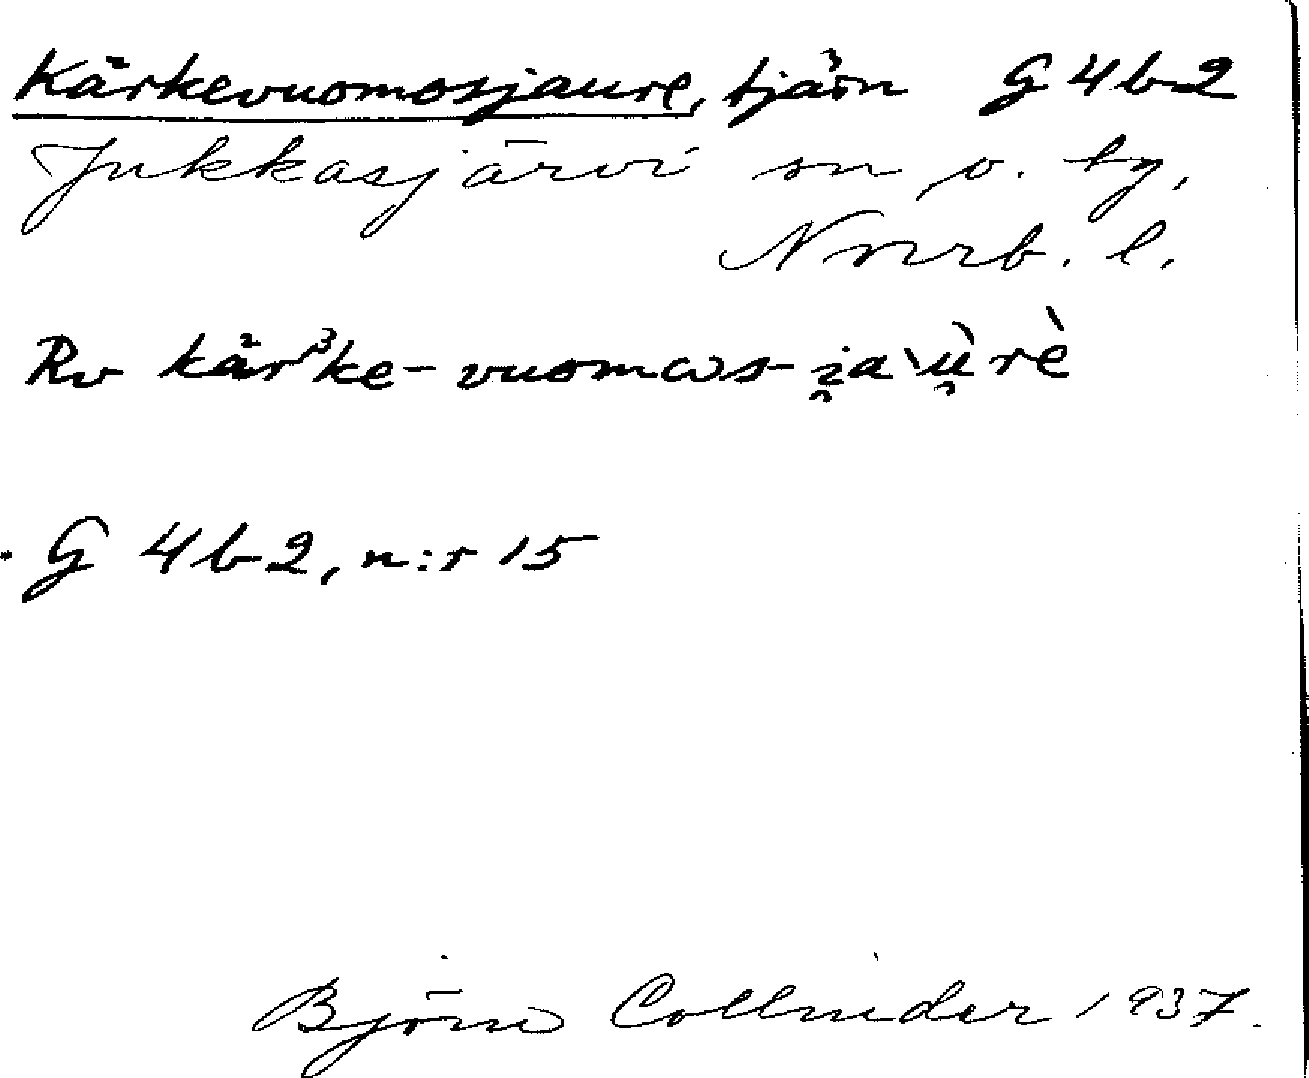 Kärkevuomosjaure, tjärn G 4 b 2
Jukkasjärvi sn o. tg,
Norrb. l.
Rv kär³ke-vuomɷs-i̯a\ù̯rè
G 4 b 2, n:r 15
Björn Collinder 1937.